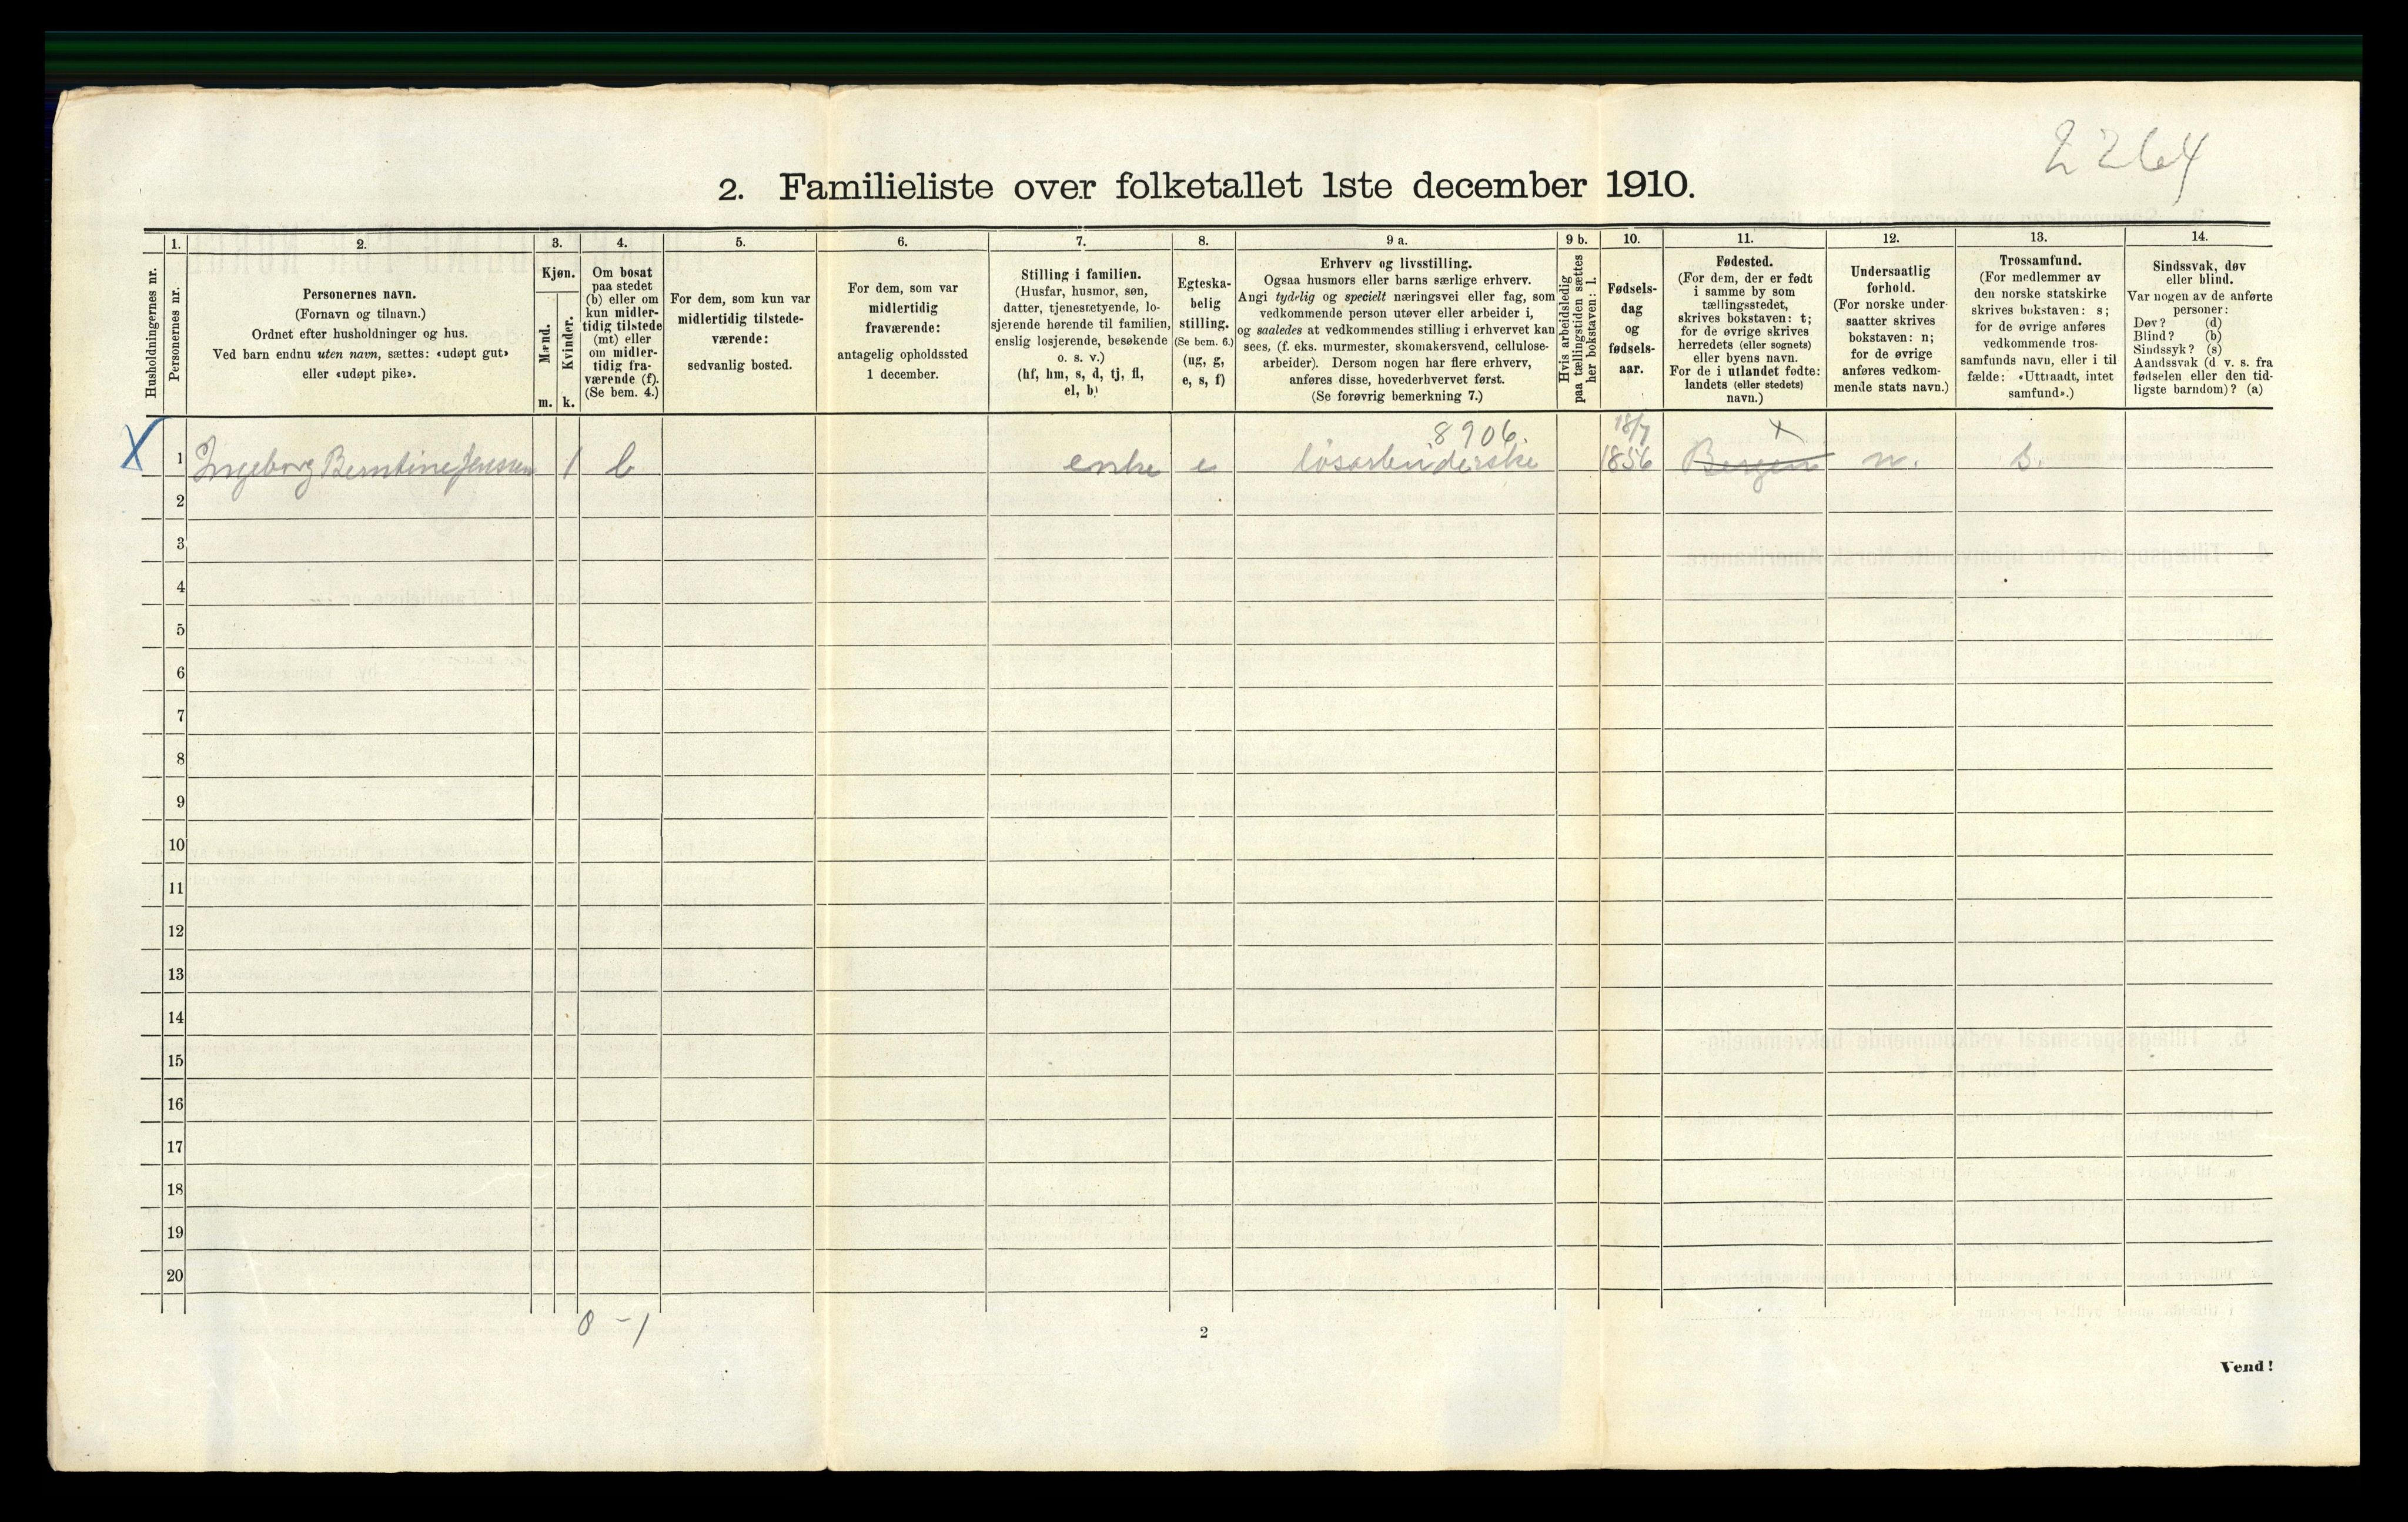 2264
2. Familieliste over folketallet 1ste december 1910.
Husholdningernes nr.
1.
Personernes nr.
2.
Personernes navn.
(Fornavn og tilnavn.)
Ordnet efter husholdninger og hus.
Ved barn endnu uten navn, sættes: «udøpt gut»
eller «udøpt pike».
3.
Kjøn.
Mænd.
Kvinder.
m. k.
4.
Om bosat
paa stedet
(b) eller om
kun midler-
tidig tilstede
(mt) eller
om midler-
tidig fra-
værende (f).
(Se bem. 4.)
5.
For dem, som kun var
midlertidig tilstede-
værende:
sedvanlig bosted.
6.
For dem, som var
midlertidig
fraværende:
antagelig opholdssted
1 december.
7.
Stilling i familien.
(Husfar, husmor, søn,
datter, tjenestetyende, lo-
sjerende hørende til familien,
enslig losjerende, besøkende
o. s. v.)
(hf, hm, s, d, tj, fl,
el, b)
8.
Egteska-
belig
stilling.
(Se bem. 6.)
(ug, g,
e, s, f)
9 a.
Erhverv og livsstilling.
Ogsaa husmors eller barns særlige erhverv.
Angi tydelig og specielt næringsvei eller fag, som
vedkommende person utøver eller arbeider i,
og saaledes at vedkommendes stilling i erhvervet kan
sees, (f. eks. murmester, skomakersvend, cellulose-
arbeider). Dersom nogen har flere erhverv,
anføres disse, hovederhvervet først.
(Se forøvrig bemerkning 7.)
9 b.
Hvis arbeidsledig
paa tællingstiden sættes
her bokstaven: l.
10.
Fødsels-
dag
og
fødsels-
aar.
11.
Fødested.
(For dem, der er født
i samme by som
tællingsstedet,
skrives bokstaven: t;
for de øvrige skrives
herredets (eller sognets)
eller byens navn.
For de i utlandet fødte:
landets (eller stedets)
navn.)
12.
Undersaatlig
forhold.
(For norske under-
saatter skrives
bokstaven: n;
for de øvrige
anføres vedkom-
mende stats navn.)
13.
Trossamfund.
(For medlemmer av
den norske statskirke
skrives bokstaven: s;
for de øvrige anføres
vedkommende tros-
samfunds navn, eller i til
fælde: «Uttraadt, intet
samfund».)
14.
Sindssvak, døv
eller blind.
Var nogen av de anførte
personer:
Døv? (d)
Blind? (b)
Sindssyk? (s)
Aandssvak (d. v. s. fra
fødselen eller den tid-
ligste barndom)? (a)
8906. 18/7 x
X 1 Ingeborg Berntine Jenssen 1 b enke e løsarbeiderske 1856 Bergen n. s.
2
3
4
5
6
7
8
9
10
11
12
13
14
15
16
17
18
19
20
0 - 1
2
Vend!